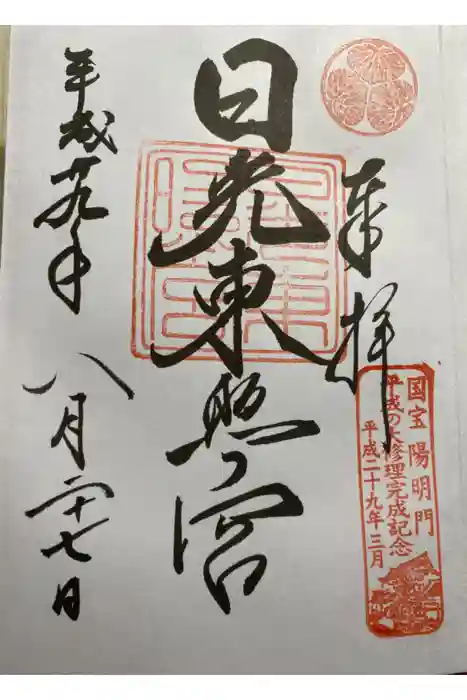 奉拝
国宝 陽明門
平成の大修理完成記念
平成二十九年三月
日光東照宮
平成廿九年
八月二十七日